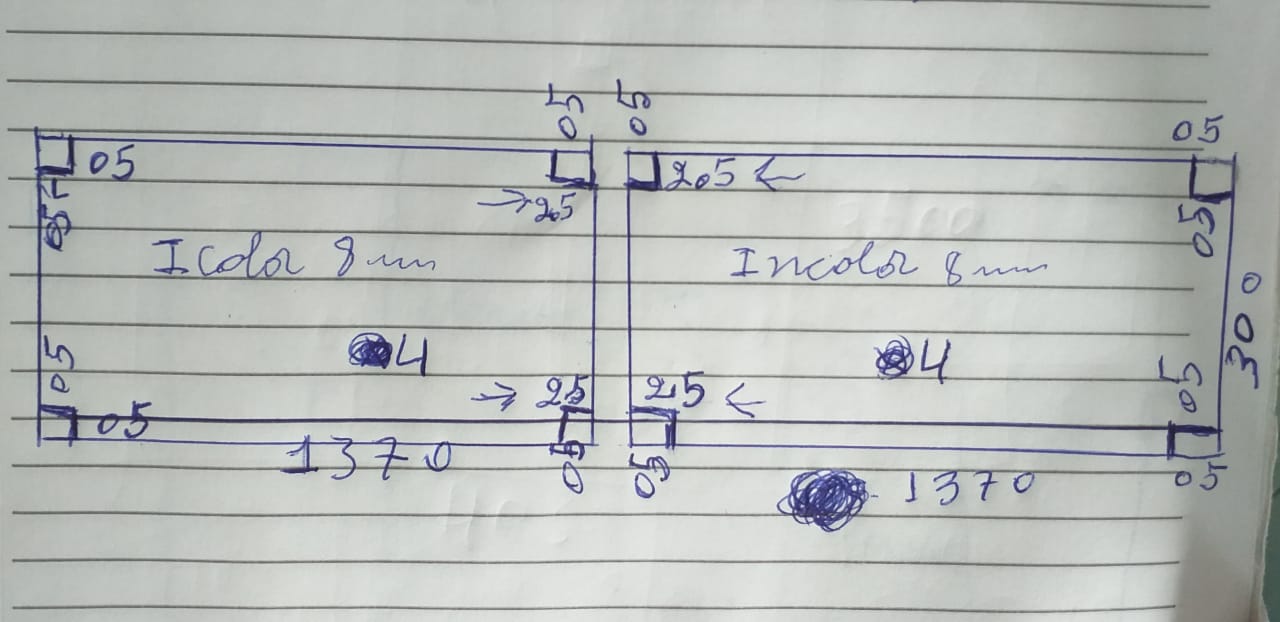 05 05 05
05 2.5 ←
05 → 2.5 05
Icolor 8mm Incolor 8mm
300
4 4
05 → 25 25 ← 05
05
1370 05 05 1370 05